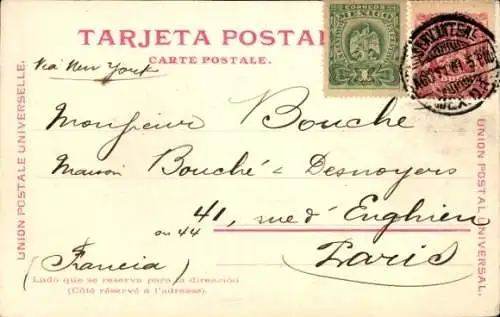 TARJETA POSTAL
CARTE POSTALE.
Via New York
CORREOS
MEXICO
Monsieur Bouche
Maison Bouché & Desnoyers
41, rue d'Enghien
ou 44
Paris
(Francia)
Lado que se reserva para la dirección
(Côté réservé à l'adresse).
UNION POSTALE UNIVERSELLE.
UNION POSTAL UNIVERSAL.